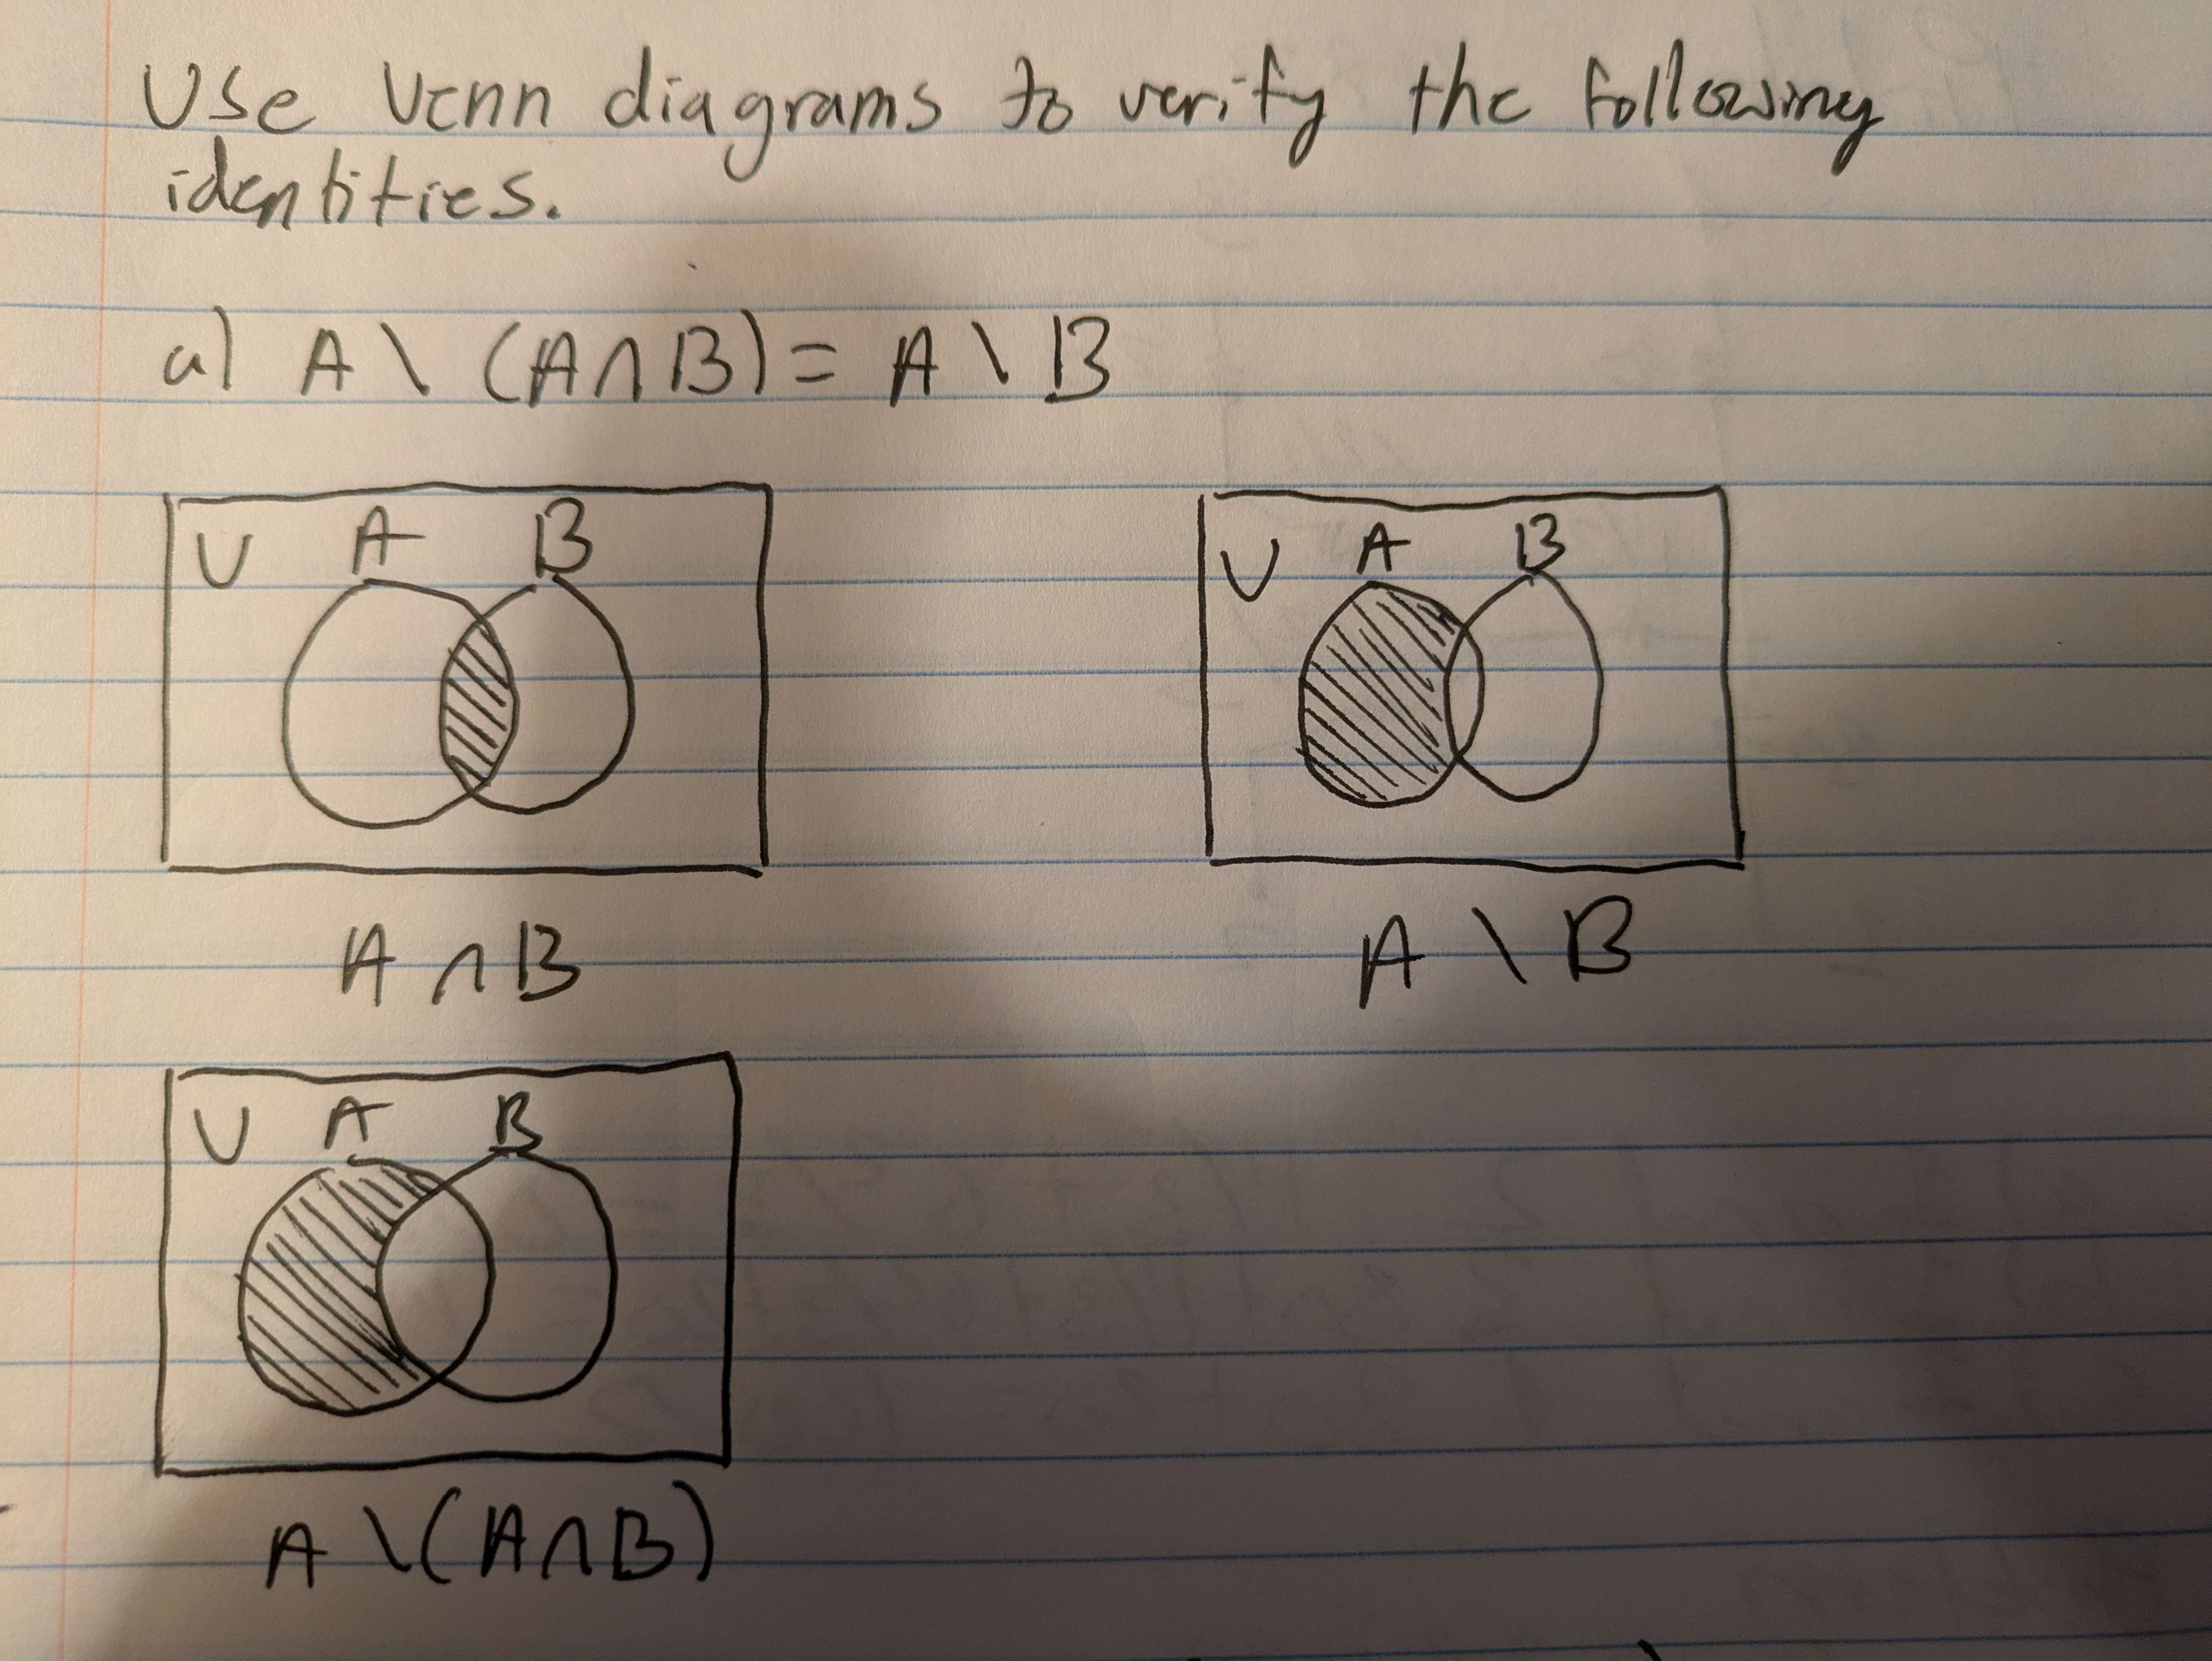 Use Venn diagrams to verify the following
identities.
a) A \ (A ∩ B) = A \ B
U A B
A ∩ B
U A B
A \ B
U A B
A \ (A ∩ B)